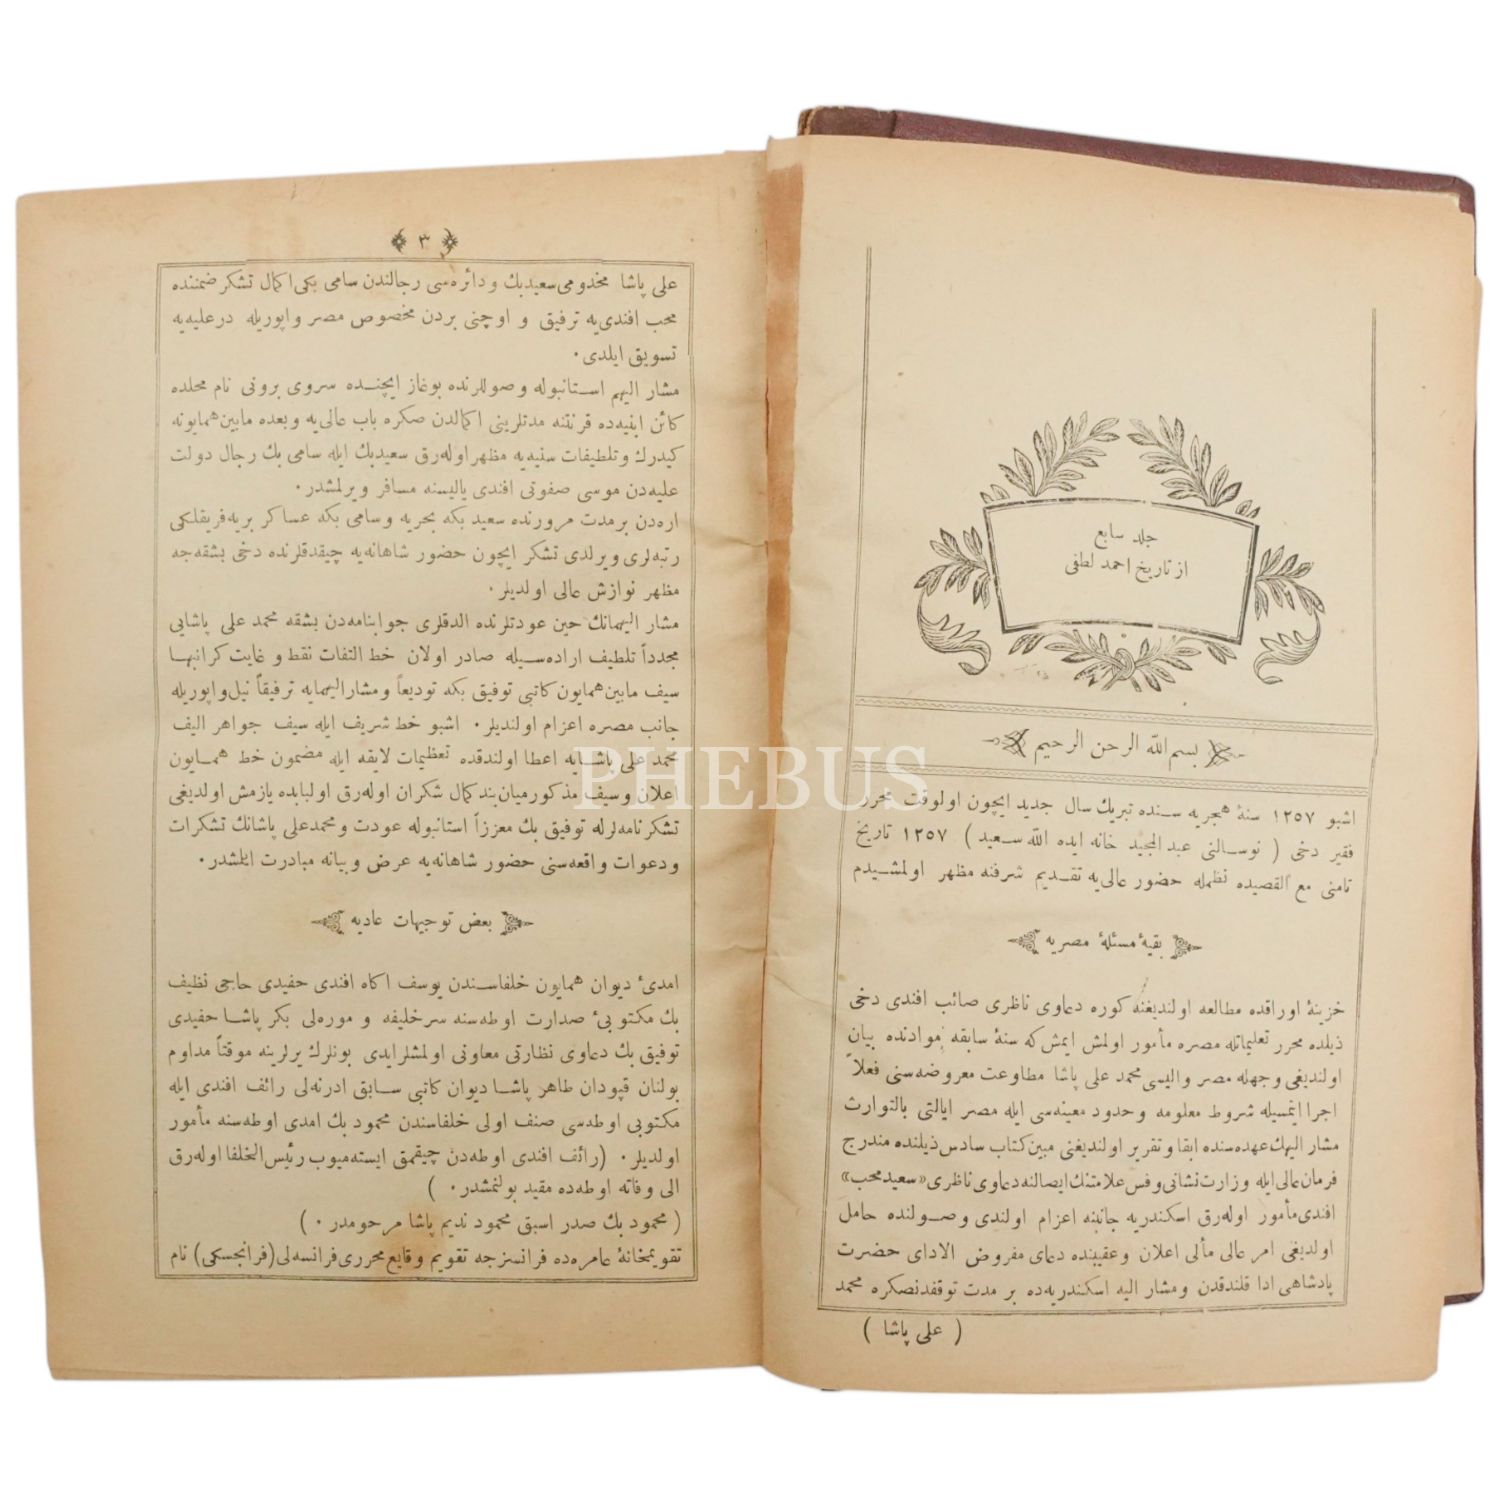 جلد سابع
از تاریخ احمد لطفی
بسم الله الرحمن الرحیم
اشبو ١٢٥٧ سنۀ هجریه سـنده تبریك سال جدید ایچون اولوقت محرر
فقیر دخی ( نوسـالنی عبدالمجید خانه ایده الله سـعید ) ١٢٥٧ تاریخ
تامنی مع القصیده نظمله حضور عالی‌یه تقـدیم شرفنه مظهر اولمشیدم
بقیۀ مسئلۀ مصریه
خزینۀ اوراقده مطالعه اولندیغنه کوره دعاوی ناظری صائب افندی دخی
ذیلده محرر تعلیماتله مصره مأمور اولمش ایمش که سنۀ سابقه موادنده بیان
اولندیغی وجهله مصر والیسی محمد علی پاشا مطاوعت معروضه‌سنی فعلاً
اجرا ایتمسیله شروط معلومه وحدود معینه‌سی ایله مصر ایالتی بالتوارث
مشار الیهك عهده‌سنده ابقا وتقریر اولندیغنی مبین کتاب سادس ذیلنده مندرج
فرمان عالی ایله وزارت نشانی وفس علامتنك ایصالنه دعاوی ناظری «سعید محب»
افندی مأمور اوله‌رق اسکندریه جانبنه اعزام اولندی وصـولنده حامل
اولدیغی امر عالی مآلی اعلان وعقیبنده دعای مفروض الادای حضرت
پادشاهی ادا قلندقدن ومشار الیه اسکندریه‌ده بر مدت توقفدنصکره محمد
( علی پاشا )
٣
علی پاشا مخدومی سعیدبك ودائره‌سی رجالندن سامی بکی اکمال تشکر ضمننده
محب افندی‌یه ترفیق و اوچنی بردن مخصوص مصر واپوریله درعلیه‌یه
تسویق ایلدی ٠
مشار الیهم اسـتانبوله وصوللرنده بوغاز ایچنـده سروی برونی نام محلده
کائن ابنیه‌ده قرنتنه مدتلرینی اکمالدن صکره باب عالی‌یه وبعده مابین همایونه
کیدرك وتلطیفات سنیه‌یه مظهر اوله‌رق سعیدبك ایله سامی بك رجال دولت
علیه‌دن موسی صفوتی افندی یالیسنه مسافر ویرلمشدر ٠
اره‌دن برمدت مرورنده سعید بکه بحریه وسامی بکه عساکر بریه فریقلکی
رتبه‌لری ویرلدی تشکر ایچون حضور شاهانه‌یه چیقدقلرنده دخی بشقه‌جه
مظهر نوازش عالی اولدیلر ٠
مشار الیهمانك حین عودتلرنده الدقلری جوابنامه‌دن بشقه محمد علی پاشایی
مجدداً تلطیف اراده‌سـیله صادر اولان خط التفات نقط وغایت کرانبهـا
سیف مابین همایون کاتبی توفیق بکه تودیعاً ومشارالیهمایه ترفیقاً نیل واپوریله
جانب مصره اعزام اولندیلر ٠ اشبو خط شریف ایله سیف جواهر الیف
محمد علی پاشـایه اعطا اولندقده تعظیمات لایقه ایله مضمون خط همـایون
اعلان وسیف مذکور میان‌بند کمال شکران اوله‌رق اولبابده یازمش اولدیغی
تشکرنامه‌لرله توفیق بك معززاً استانبوله عودت ومحمدعلی پاشانك تشکرات
ودعوات واقعه‌سنی حضور شاهانه‌یه عرض وبیانه مبادرت ایلشدر ٠
بعض توجیهات عادیه
امدیٔ دیوان همایون خلفاسـندن یوسف اکاه افندی حفیدی حاجی نظیف
بك مکتوبیٔ صدارت اوطه‌سنه سرخلیفه و موره‌لی بکر پاشـا حفیدی
توفیق بك دعاوی نظارتی معاونی اولمشلرایدی بونلرك یرلرینه موقتاً مداوم
بولنان قپودان طاهر پاشـا دیوان کاتبی سـابق ادرنه‌لی رائف افندی ایله
مکتوبی اوطه‌سی صنف اولی خلفاسندن محمود بك امدی اوطه‌سنه مأمور
اولدیلر ٠ (رائف افندی اوطه‌دن چیقمق ایسته‌میوب رئیس‌الخلفا اوله‌رق
الی وفاته اوطه‌ده مقید بولنمشدر ٠ )
( محمود بك صدر اسبق محمود ندیم پاشا مرحومدر ٠ )
تقویمخانۀ عامره‌ده فرانسزجه تقویم وقایع محرری فرانسه‌لی (فرانجسکی) نام
PHEBUS